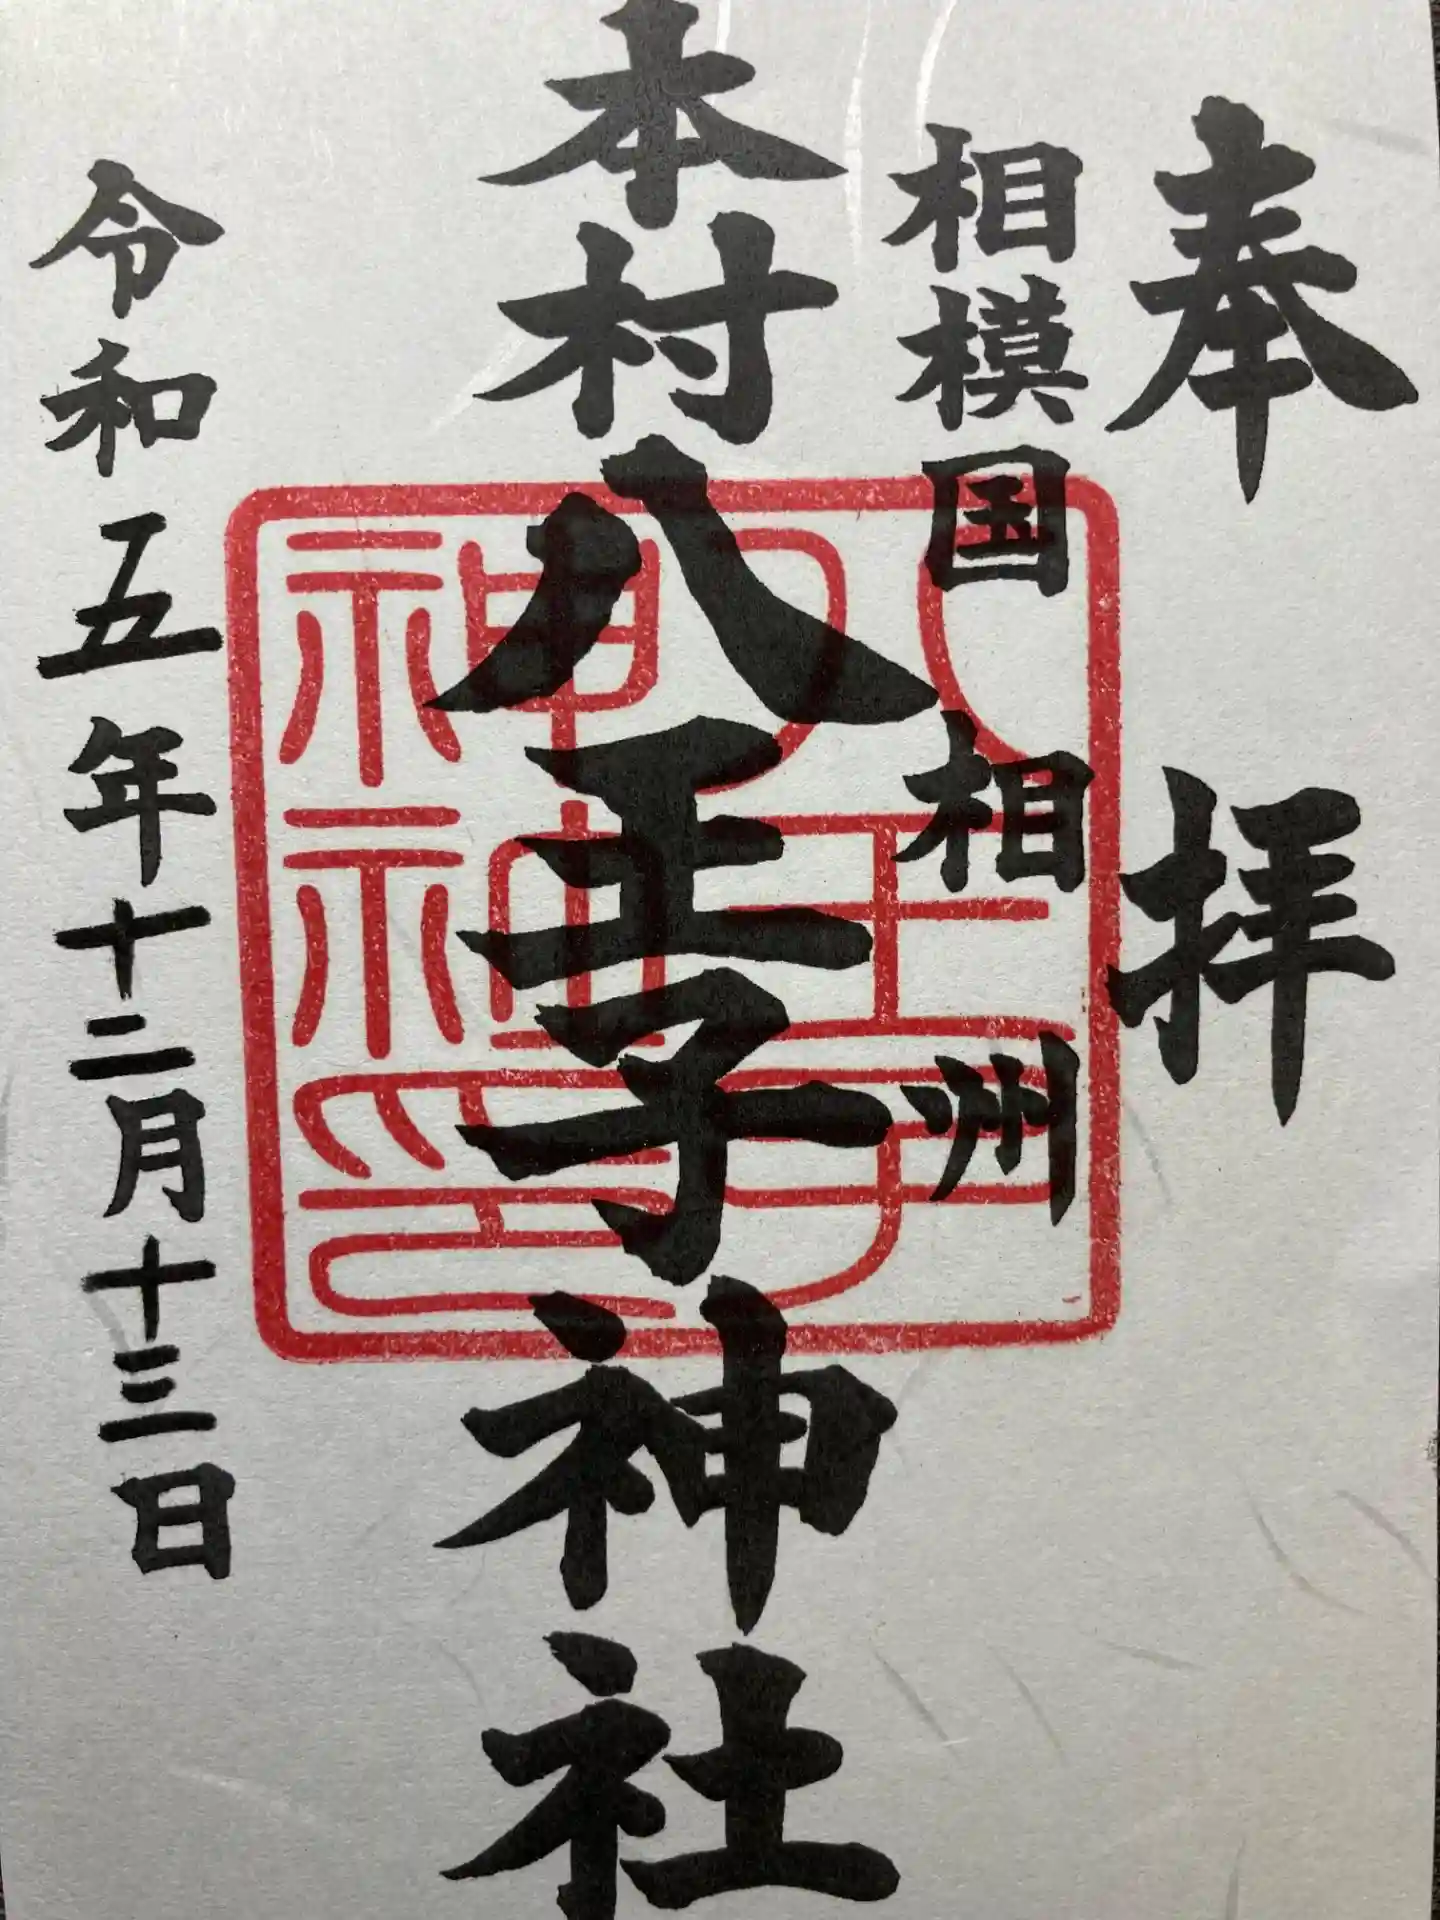 奉拝
相模国 相州
本村八王子神社
八王子
神社印
令和五年十二月十三日